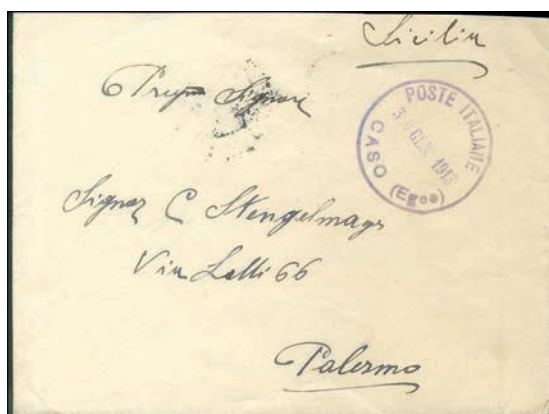 Sicilia
Preg. Signore
POSTE ITALIANE
GEN. 1913
CASO (Egeo)
Signor C Stengelmayr
Via Lolli 66
Palermo